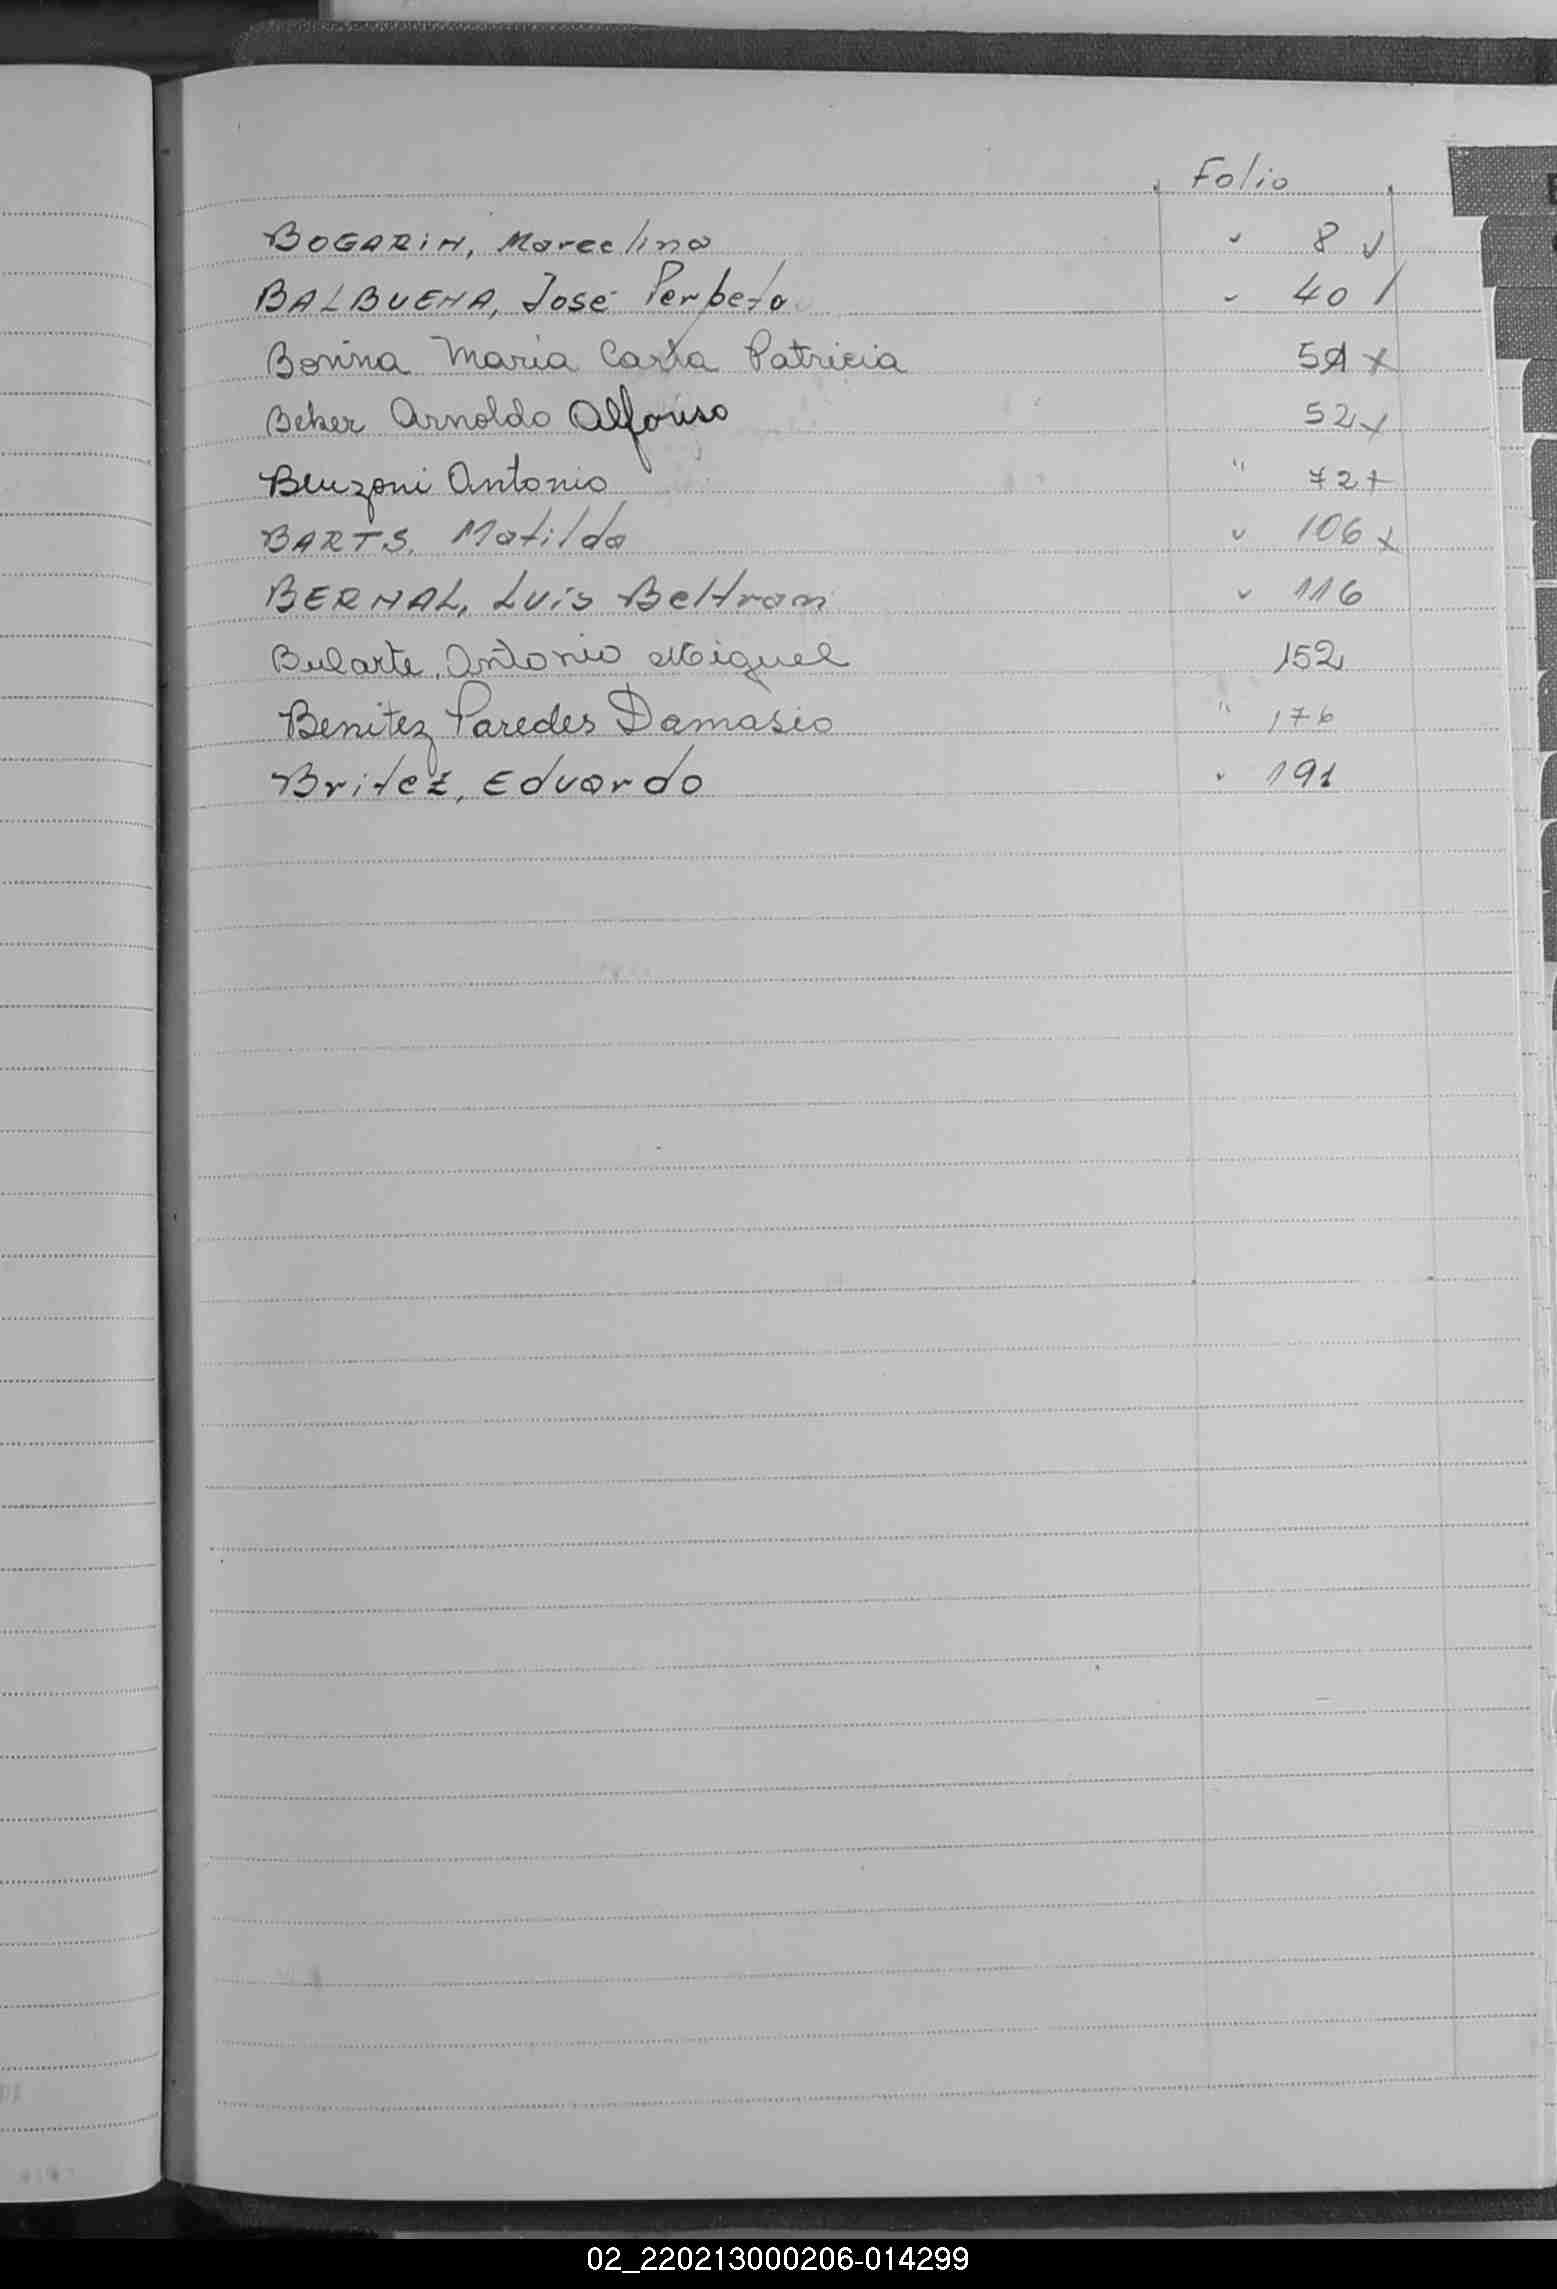 Folio
BOGARIN, Marcelina " 8 ✓
BALBUENA, José Perpeto " 40 /
Bonina Maria Carla Patricia 51 x
Beker Arnoldo Alfonso 52 x
Benzoni Antonio " 72 +
BARTS, Matilda " 106 x
BERNAL, Luis Beltran " 116
Bularte, Antonio Miguel 152
Benitez Paredes Damasio " 176
Britez, Eduardo " 191
02_220213000206-014299